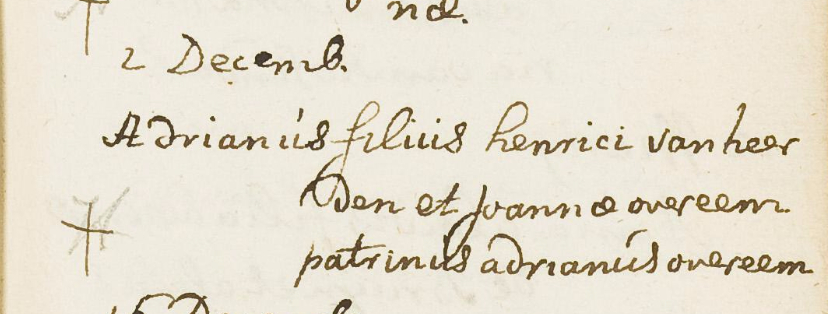 næ.
2 Decemb.
Adrianús filius henrici van heer
den et joannæ overeem
patrinús adrianús overeem